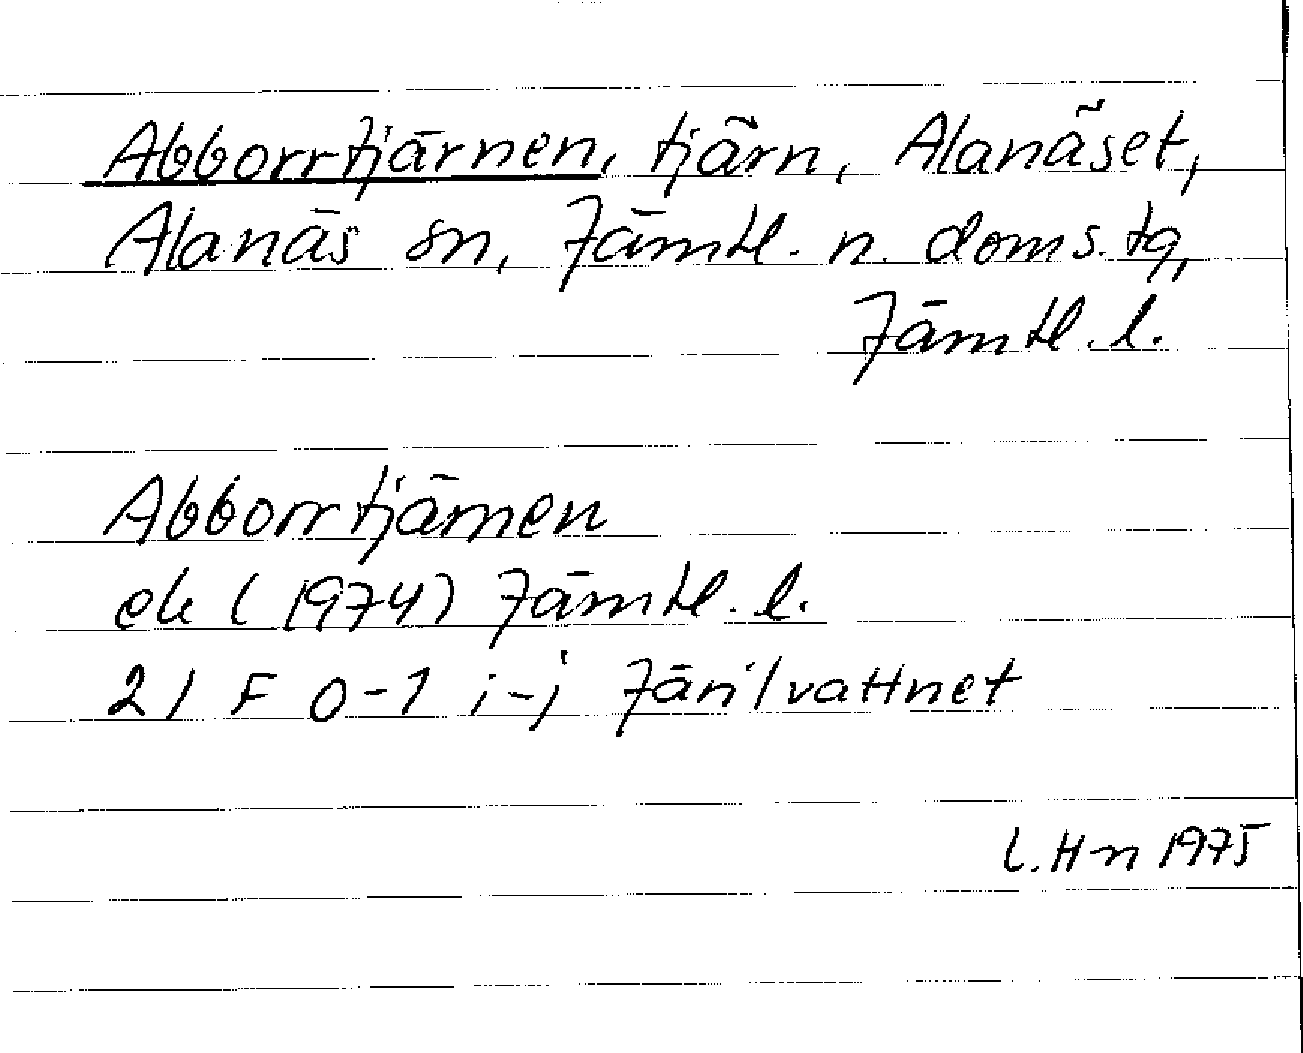 Abborrtjärnen, tjärn, Alanäset,
Alanäs sn, Jämtl. n. doms. tg,
Jämtl. l.
Abborrtjärnen
ek (1974) Jämtl. l.
21 F 0-1 i-j Järilvattnet
L. H-n 1975